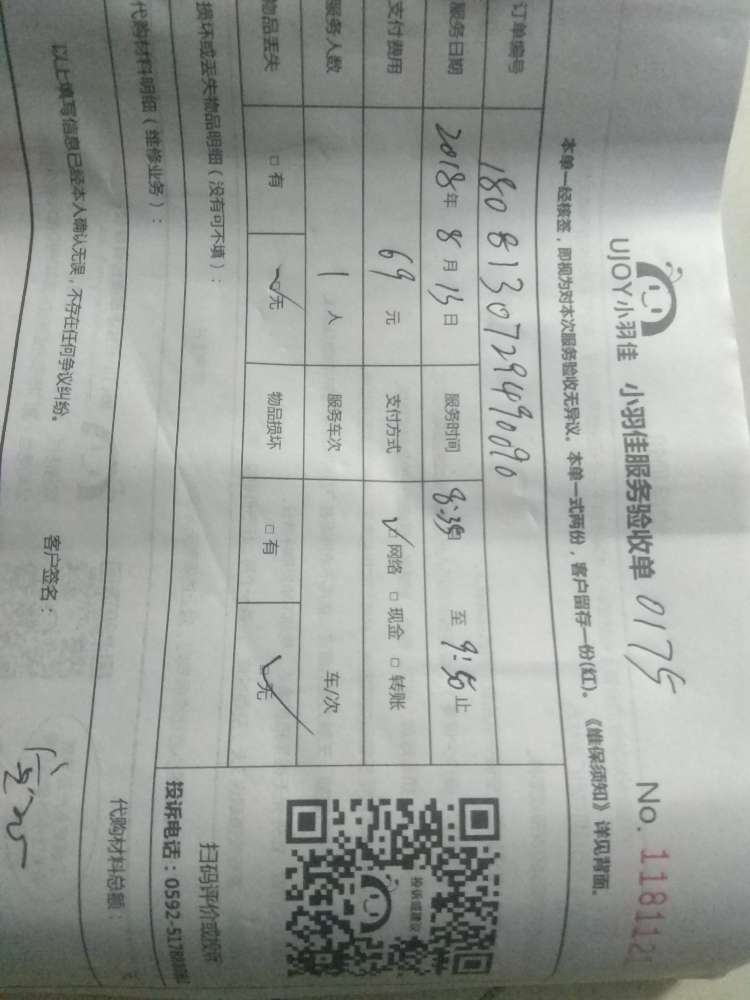 UJOY小羽佳 小羽佳服务验收单 0175 No. 118112
本单一经核签，即视为对本次服务验收无异议。本单一式两份，客户留存一份(红)。《维保须知》详见背面。
订单编号 180813072949090
服务日期 2018年 8月 15日 服务时间 8:35 至 9:50 止
支付费用 69 元 支付方式 ☑ 网络 □ 现金 □ 转账
服务人数 1 人 服务车次 车/次
物品丢失 □ 有 ☑ 无 物品损坏 □ 有 ☑ 无
投诉或建议
扫码评价或投诉
损坏或丢失物品明细（没有可不填）：
投诉电话：0592-5178
代购材料明细（维修业务）：
代购材料总额：
以上填写信息已经本人确认无误，不存在任何争议纠纷。 客户签名：